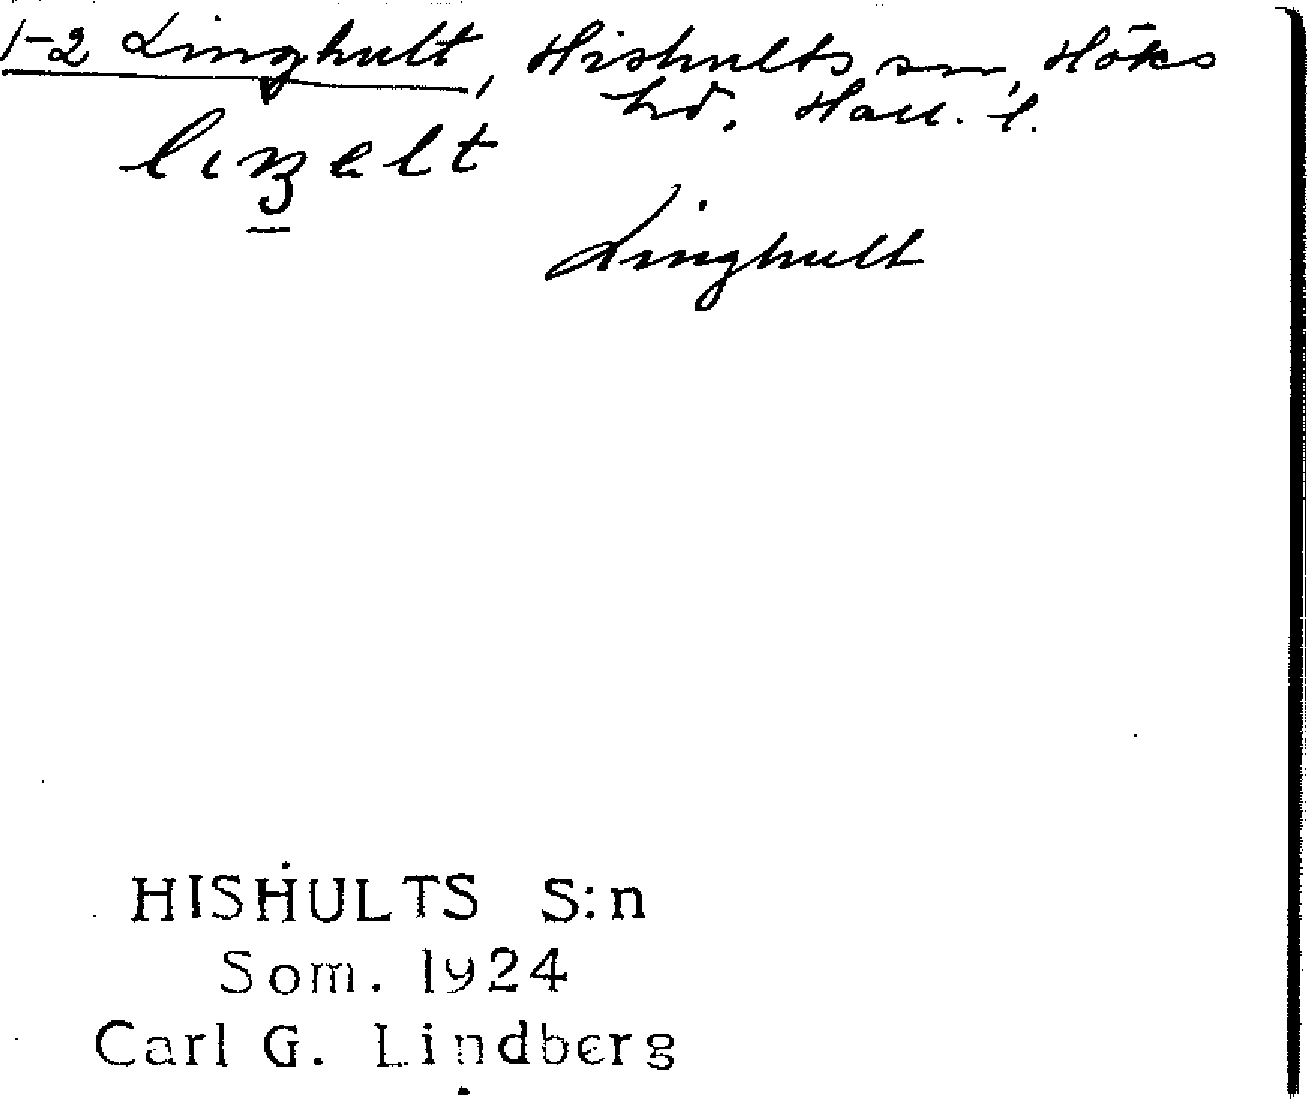 1-2 Linghult, Hishults sn, Höks
hd, Hall. l.
Linghult
HISHULTS S:n
Som. 1924
Carl G. Lindberg